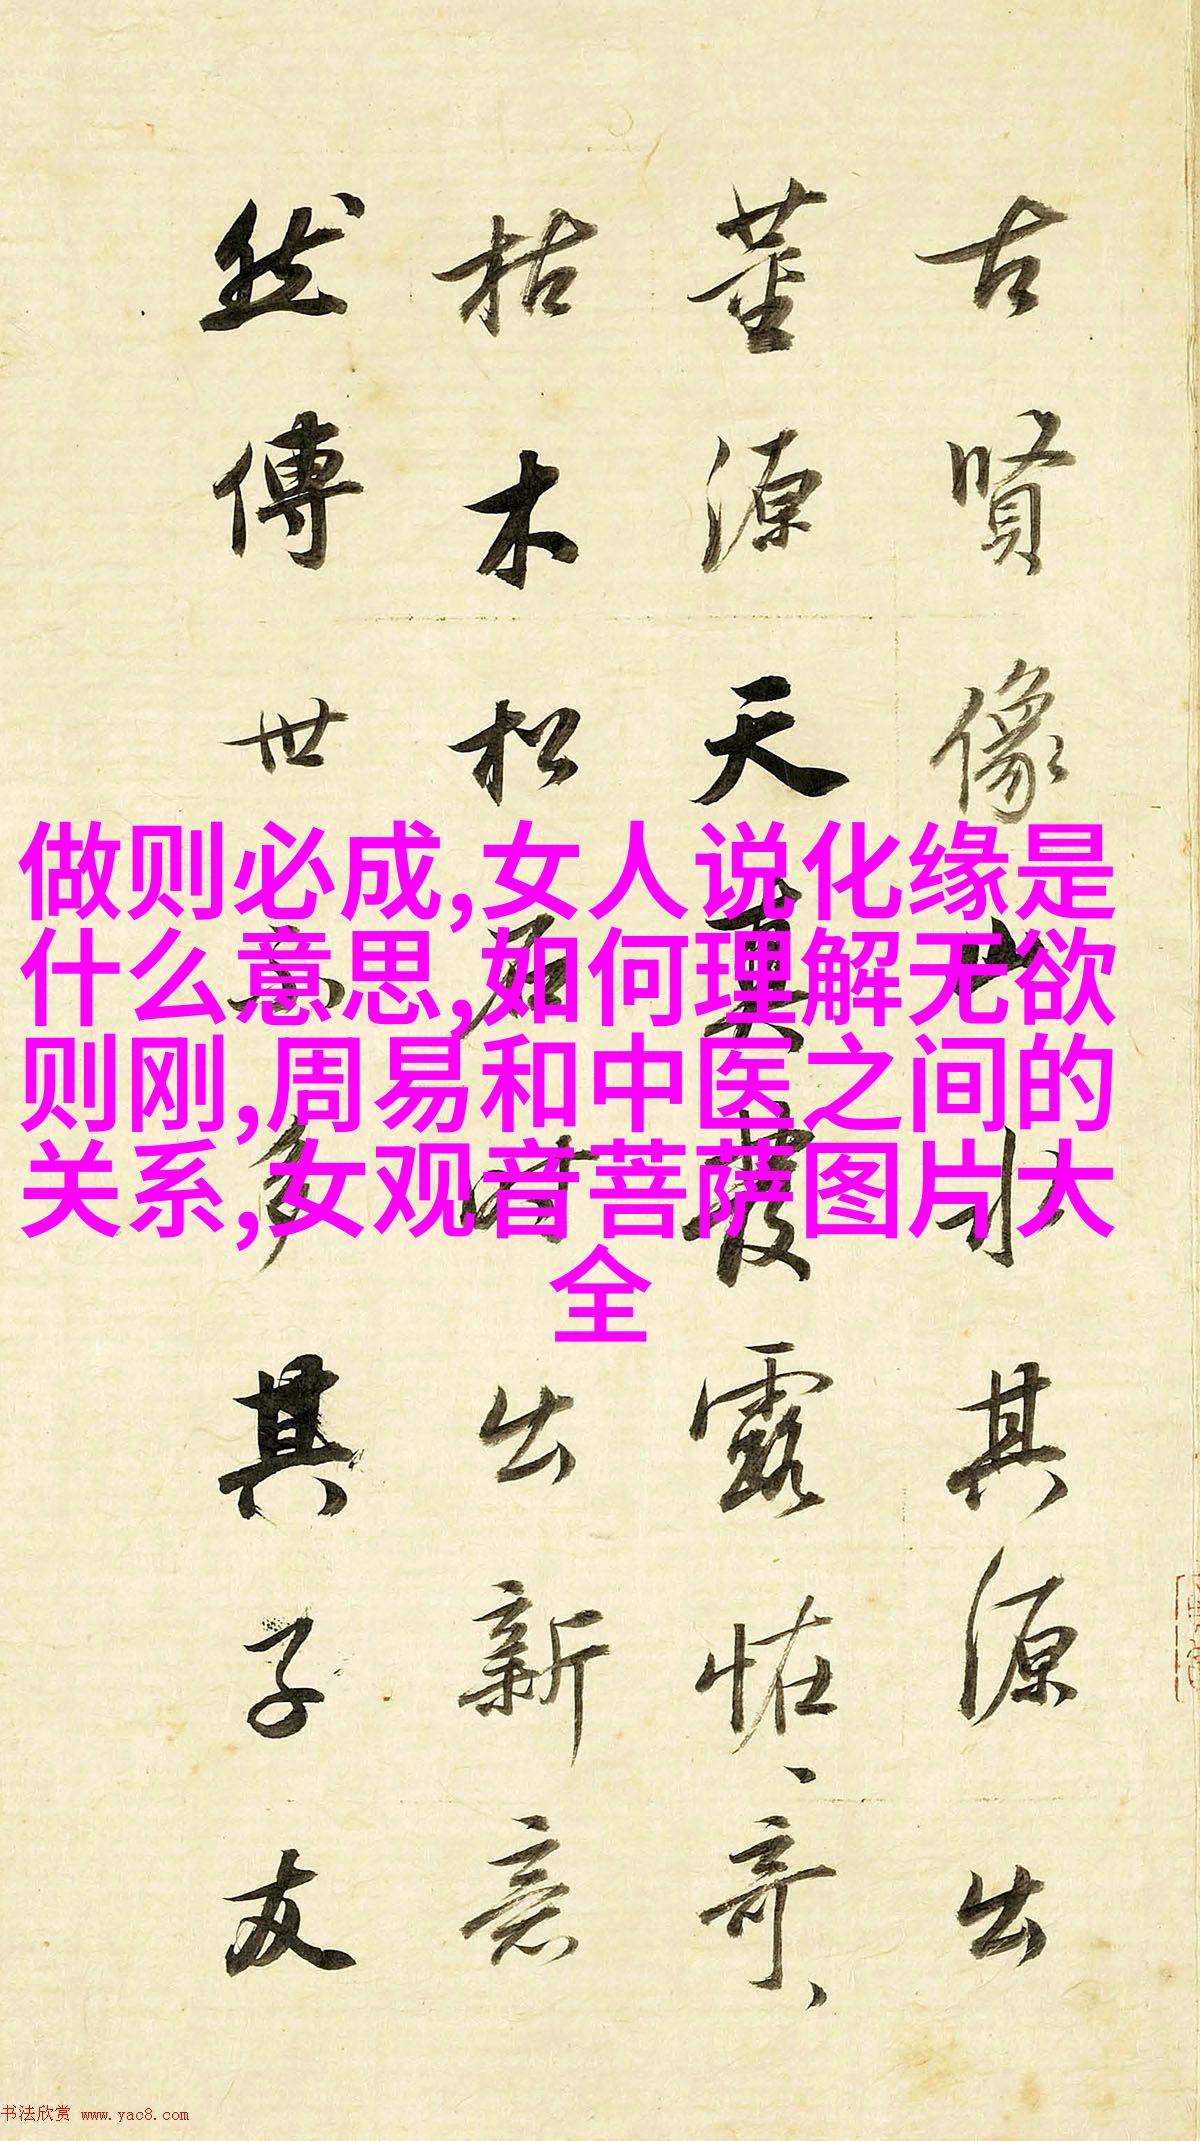 古賢像山水其源出
董源天真叢露怪奇
枯木松石時出新意
然傳世亦多其子友
做则必成,女人说化缘是
什么意思,如何理解无欲
则刚,周易和中医之间的
关系,女观音菩萨图片大
全
书法欣赏 www.yac8.com